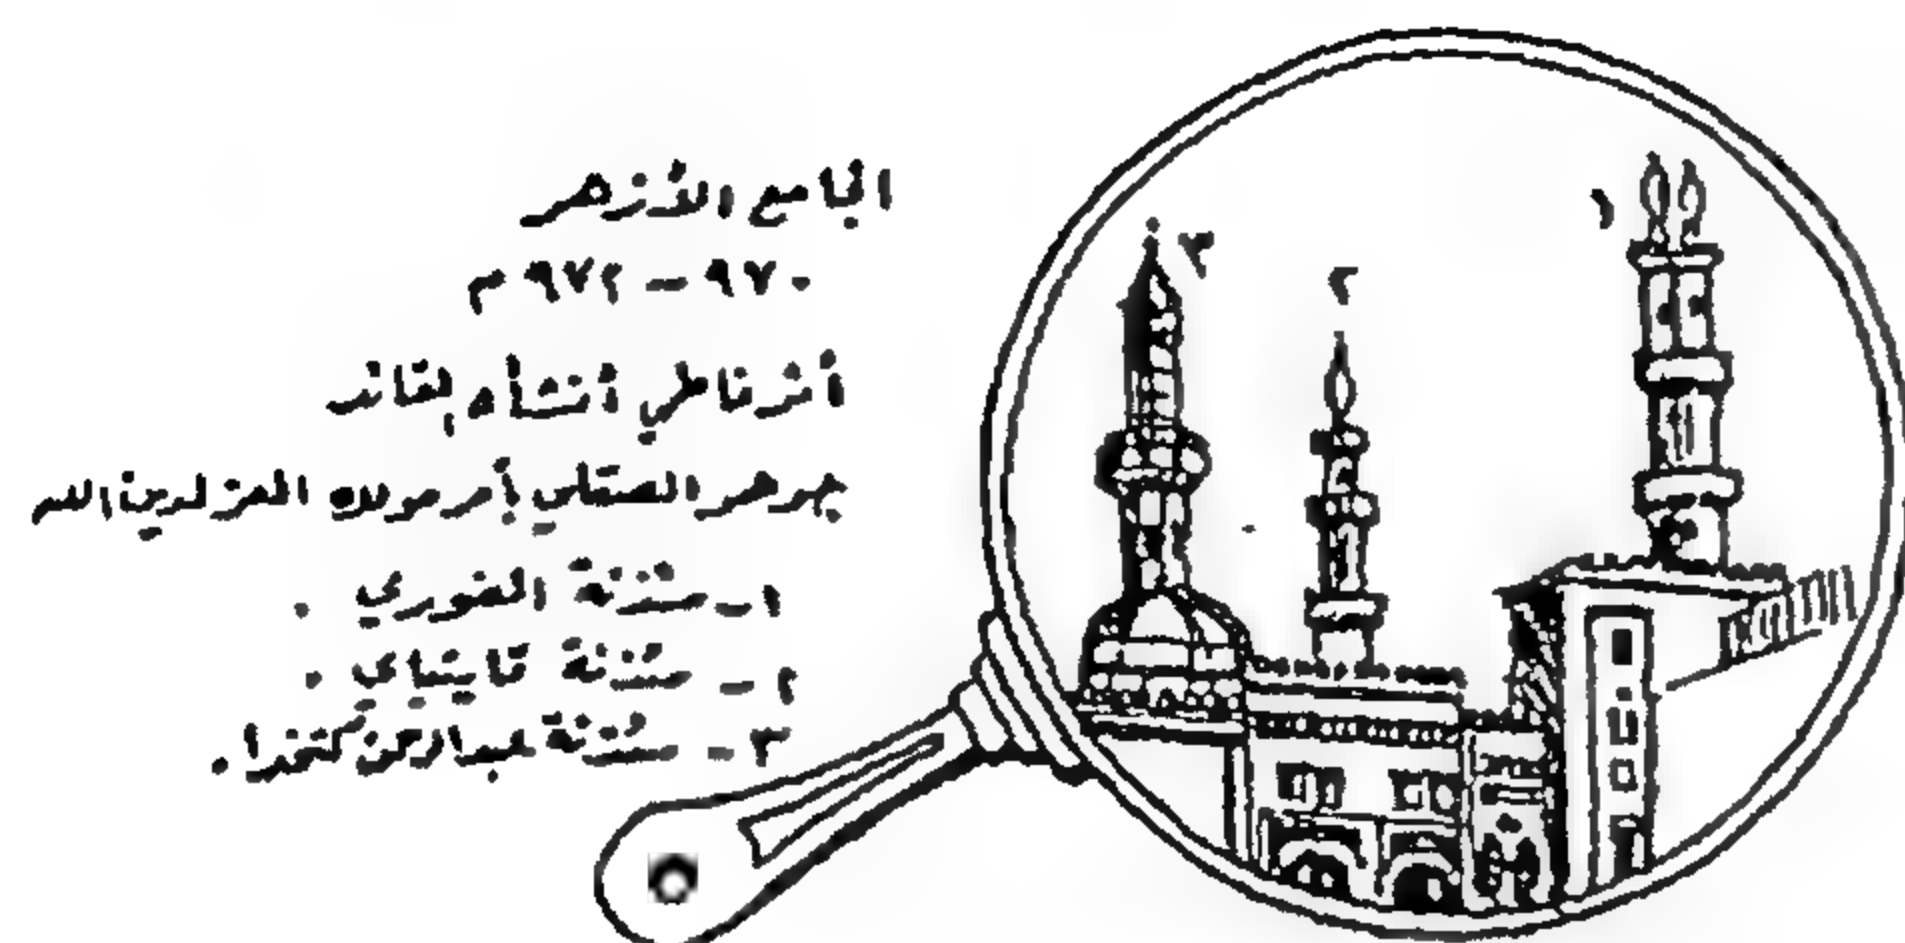 الجامع الأزهر
٩٧٠ – ٩٧٢ م
أثر فاطمي أنشأه القائد
جوهر الصقلي بأمر مولاه المعز لدين الله
١ – مئذنة الغوري .
٢ – مئذنة قايتباي .
٣ – مئذنة عبدالرحمن كتخدا .
١
٢
٣